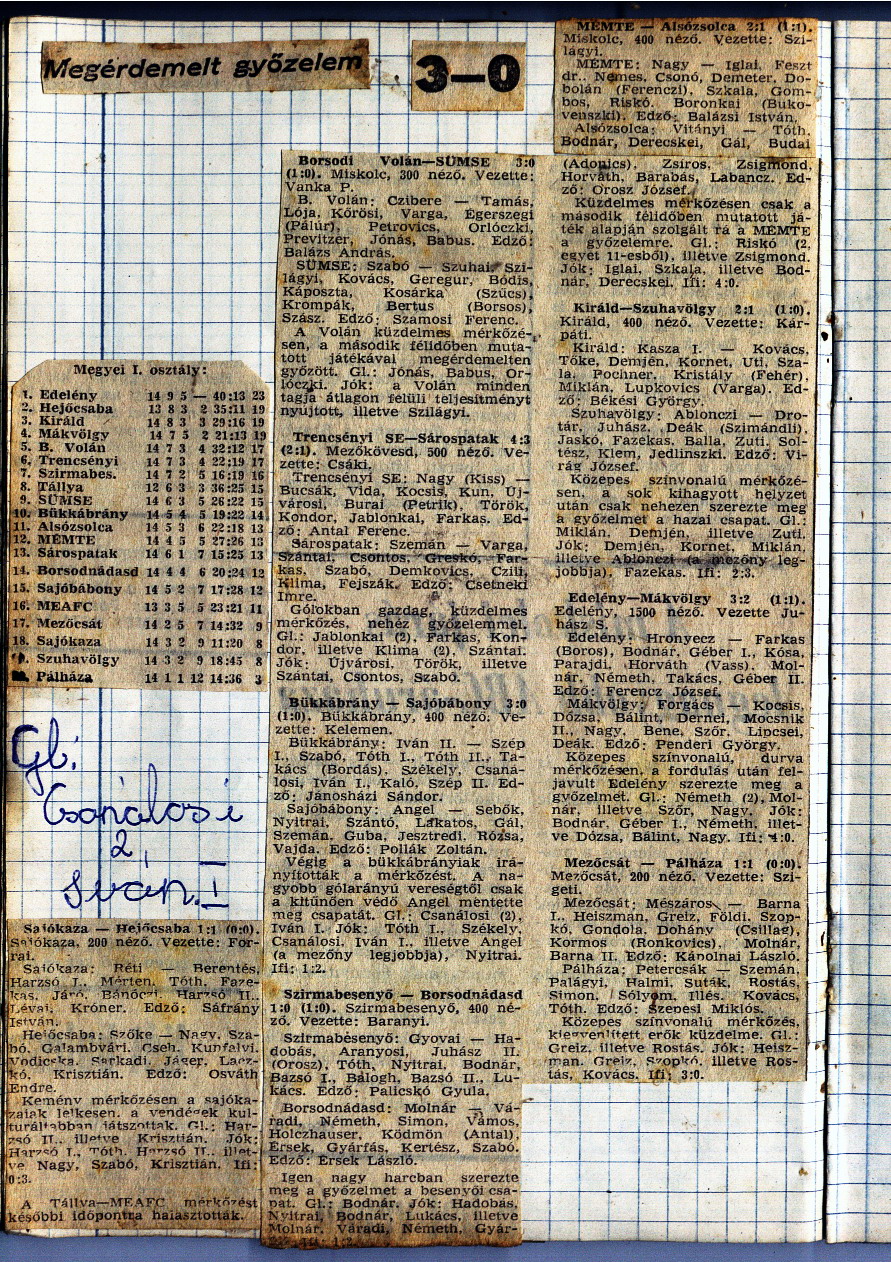 Megérdemelt győzelem
3—0
Megyei I. osztály:
1. Edelény 14 9 5 — 40:13 23
2. Hejőcsaba 13 8 3 2 35:11 19
3. Királd 14 8 3 3 29:16 19
4. Mákvölgy 14 7 5 2 21:13 19
5. B. Volán 14 7 3 4 32:12 17
6. Trencsényi 14 7 3 4 22:19 17
7. Szirmabes. 14 7 2 5 16:19 16
8. Tállya 12 6 3 3 36:25 15
9. SÜMSE 14 6 3 5 26:22 15
10. Bükkábrány 14 5 4 5 19:22 14
11. Alsózsolca 14 5 3 6 22:18 13
12. MEMTE 14 4 5 5 27:26 13
13. Sárospatak 14 6 1 7 15:25 13
14. Borsodnádasd 14 4 4 6 20:24 12
15. Sajóbábony 14 5 2 7 17:28 12
16. MEAFC 13 3 5 5 23:21 11
17. Mezőcsát 14 2 5 7 14:32 9
18. Sajókaza 14 3 2 9 11:20 8
Szuhavölgy 14 3 2 9 18:45 8
Pálháza 14 1 1 12 14:36 3
Gl:
Csanálosi
2,
Iván I
Sajókaza — Hejőcsaba 1:1 (0:0).
Sajókaza, 200 néző. Vezette: For-
rai.
Sajókaza: Réti — Berentés,
Harzsó I., Mérten, Tóth, Faze-
kas, Járó, Bánóczi, Harzsó II.,
Lévai, Króner. Edző: Sáfrány
István.
Hejőcsaba: Szőke — Nagy, Sza-
bó, Galambvári, Cseh, Kunfalvi,
Vodicska, Sarkadi, Jáger, Lacz-
kó, Krisztián. Edző: Osváth
Endre.
Kemény mérkőzésen a sajóka-
zaiak lelkesen, a vendégek kul-
turáltabban játszottak. Gl.: Har-
zsó II., illetve Krisztián. Jók:
Harzsó I., Tóth, Harzsó II., illet-
ve Nagy, Szabó, Krisztián. Ifi:
0:3.
A Tállya—MEAFC mérkőzést
későbbi időpontra halasztották.
Borsodi Volán—SÜMSE 3:0
(1:0). Miskolc, 300 néző. Vezette:
Vanka P.
B. Volán: Czibere — Tamás,
Lója, Kőrösi, Varga, Egerszegi
(Pálúr), Petrovics, Orlóczki,
Previtzer, Jónás, Babus. Edző:
Balázs András.
SÜMSE: Szabó — Szuhai, Szi-
lágyi, Kovács, Geregur, Bódis,
Káposzta, Kosárka (Szűcs),
Krompák, Bertus (Borsos),
Szász. Edző: Szamosi Ferenc.
A Volán küzdelmes mérkőzé-
sen, a második félidőben muta-
tott játékával megérdemelten
győzött. Gl.: Jónás, Babus, Or-
lóczki. Jók: a Volán minden
tagja átlagon felüli teljesítményt
nyújtott, illetve Szilágyi.
Trencsényi SE—Sárospatak 4:3
(2:1). Mezőkövesd, 500 néző. Ve-
zette: Csáki.
Trencsényi SE: Nagy (Kiss) —
Bucsák, Vida, Kocsis, Kun, Új-
városi, Burai (Petrik), Török,
Kondor, Jablonkai, Farkas. Ed-
ző: Antal Ferenc.
Sárospatak: Szemán — Varga,
Szántai, Csontos, Greskó, Far-
kas, Szabó, Demkovics, Czili,
Klima, Fejszák. Edző: Csetneki
Imre.
Gólokban gazdag, küzdelmes
mérkőzés, nehéz győzelemmel.
Gl.: Jablonkai (2), Farkas, Kon-
dor, illetve Klima (2), Szántai.
Jók: Újvárosi, Török, illetve
Szántai, Csontos, Szabó.
Bükkábrány — Sajóbábony 3:0
(1:0). Bükkábrány, 400 néző. Ve-
zette: Kelemen.
Bükkábrány: Iván II. — Szép
I., Szabó, Tóth I., Tóth II., Ta-
kács (Bordás), Székely, Csaná-
losi, Iván I., Kaló, Szép II. Ed-
ző: Jánosházi Sándor.
Sajóbábony: Angel — Sebők,
Nyitrai, Szántó, Lakatos, Gál,
Szemán, Guba, Jesztredi, Rózsa,
Vajda. Edző: Pollák Zoltán.
Végig a bükkábrányiak irá-
nyították a mérkőzést. A na-
gyobb gólarányú vereségtől csak
a kitűnően védő Angel mentette
meg csapatát. Gl.: Csanálosi (2),
Iván I. Jók: Tóth I., Székely,
Csanálosi, Iván I., illetve Angel
(a mezőny legjobbja), Nyitrai.
Ifi: 1:2.
Szirmabesenyő — Borsodnádasd
1:0 (1:0). Szirmabesenyő, 400 né-
ző. Vezette: Baranyi.
Szirmabesenyő: Gyovai — Ha-
dobás, Aranyosi, Juhász II.
(Orosz), Tóth, Nyitrai, Bodnár,
Bazsó I., Balogh, Bazsó II., Lu-
kács. Edző: Palicskó Gyula.
Borsodnádasd: Molnár — Vá-
radi, Németh, Simon, Vámos,
Holczhauser, Ködmön (Antal),
Érsek, Gyárfás, Kertész, Szabó.
Edző: Érsek László.
Igen nagy harcban szerezte
meg a győzelmet a besenyői csa-
pat. Gl.: Bodnár. Jók: Hadobás,
Nyitrai, Bodnár, Lukács, illetve
Molnár, Váradi, Németh, Gyár-
MEMTE — Alsózsolca 2:1 (1:1).
Miskolc, 400 néző. Vezette: Szi-
lágyi.
MÉMTE: Nagy — Iglai, Feszt
dr., Nemes, Csonó, Demeter, Do-
bolán (Ferenczi), Szkala, Gom-
bos, Riskó, Boronkai (Buko-
venszki). Edző: Balázsi István.
Alsózsolca: Vitányi — Tóth,
Bodnár, Derecskei, Gál, Budai
(Adonics), Zsíros, Zsigmond,
Horváth, Barabás, Labancz. Ed-
ző: Orosz József.
Küzdelmes mérkőzésen csak a
második félidőben mutatott já-
ték alapján szolgált rá a MEMTE
a győzelemre. Gl.: Riskó (2,
egyet 11-esből), illetve Zsigmond.
Jók: Iglai, Szkala, illetve Bod-
nár, Derecskei. Ifi: 4:0.
Királd—Szuhavölgy 2:1 (1:0).
Királd, 400 néző. Vezette: Kár-
páti.
Királd: Kasza I. — Kovács,
Tőke, Demjén, Kornet, Uti, Sza-
la, Pochner, Kristály (Fehér),
Miklán, Lupkovics (Varga). Ed-
ző: Békési György.
Szuhavölgy: Ablonczi — Dro-
tár, Juhász, Deák (Szimándli),
Jaskó, Fazekas, Balla, Zuti, Sol-
tész, Klem, Jedlinszki. Edző: Vi-
rág József.
Közepes színvonalú mérkőzé-
sen, a sok kihagyott helyzet
után csak nehezen szerezte meg
a győzelmet a hazai csapat. Gl.:
Miklán, Demjén, illetve Zuti.
Jók: Demjén, Kornet, Miklán,
illetve Ablonczi (a mezőny leg-
jobbja), Fazekas. Ifi: 2:3.
Edelény—Mákvölgy 3:2 (1:1).
Edelény, 1500 néző. Vezette Ju-
hász S.
Edelény: Hronyecz — Farkas
(Boros), Bodnár, Géber I., Kósa,
Parajdi, Horváth (Vass), Mol-
nár, Németh, Takács, Géber II.
Edző: Ferencz József.
Mákvölgy: Forgács — Kocsis,
Dózsa, Bálint, Dernei, Mocsnik
II., Nagy, Bene, Szőr, Lipcsei,
Deák. Edző: Penderi György.
Közepes színvonalú, durva
mérkőzésen, a fordulás után fel-
javult Edelény szerezte meg a
győzelmet. Gl.: Németh (2), Mol-
nár, illetve Szőr, Nagy. Jók:
Bodnár, Géber I., Németh, illet-
ve Dózsa, Bálint, Nagy. Ifi: 4:0.
Mezőcsát — Pálháza 1:1 (0:0).
Mezőcsát, 200 néző. Vezette: Szi-
geti.
Mezőcsát: Mészáros — Barna
I., Heiszman, Greiz, Földi, Szop-
kó, Gondola, Dohány (Csillag),
Kormos (Ronkovics), Molnár,
Barna II. Edző: Kánolnai László.
Pálháza: Petercsák — Szemán,
Palágyi, Halmi, Suták, Rostás,
Simon, Sólyom, Illés, Kovács,
Tóth. Edző: Szepesi Miklós.
Közepes színvonalú mérkőzés,
kiegyenlített erők küzdelme. Gl.:
Greiz, illetve Rostás. Jók: Heisz-
man, Greiz, Szopkó, illetve Ros-
tás, Kovács. Ifi: 3:0.